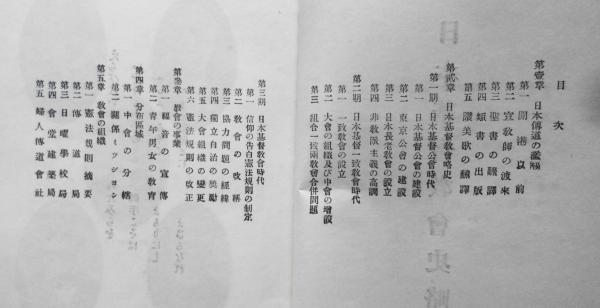 目次
第壹章 日本傳道の濫觴
第一 開港以前
第二 宣敎師の渡來
第三 聖書の飜譯
第四 類書の出版
第五 讃美歌の飜譯
第貳章 日本基督敎會略史
第一期 日本基督公會時代
第一 日本基督公會の建設
第二 東京公會の建設
第三 日本長老敎會の設立
第四 非敎派主義の高調
第二期 日本基督一致敎會時代
第一 一致敎會の設立
第二 大會の組織及び中會の增設
第三 組合一致兩敎會合併問題
第三期 日本基督敎會時代
第一 信仰の告白憲法規則の制定
第二 敎會の改稱
第三 協力問題の經緯
第四 獨立自治の奬勵
第五 大會組織の變更
第六 憲法規則の改正
第參章 敎會の事業
第一 福音の宣傳
第二 靑年男女の敎育
第四章 分布區域
第一 中會の分轄
第二 關係ミッション
第五章 敎會の組織
第一 憲法規則摘要
第二 傳道局
第三 日曜學校局
第四 會堂建築局
第五 婦人傳道會社